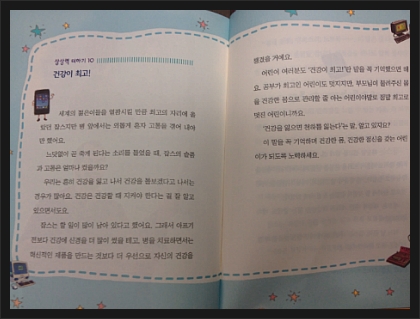 건강이 최고!
세계의 젊은이들을 열광시킬 만큼 최고의 자리에 올
랐던 잡스지만 병 앞에서는 외롭게 혼자 고통을 겪어 내야
만 했어요.
느닷없이 곧 죽게 된다는 소리를 들었을 때, 잡스의 슬픔
과 고통은 얼마나 컸을까요?
우리는 흔히 건강을 잃고 나서 건강을 돌보겠다고 나서는
경우가 많아요. 건강은 건강할 때 지켜야 한다는 걸 잘 알고
있으면서도요.
잡스는 할 일이 많이 남아 있다고 했어요. 그래서 아프기
전보다 건강에 신경을 더 많이 썼을 테고, 병을 치료하면서는
혁신적인 제품을 만드는 것보다 더 우선으로 자신의 건강을
챙겼을 거예요.
어린이 여러분도 '건강이 최고!'란 말을 꼭 기억했으면 해
요. 공부가 최고인 어린이도 멋지지만, 부모님이 물려주신 몸
을 건강한 몸으로 관리할 줄 아는 어린이야말로 정말 최고로
멋진 어린이니까요.
'건강을 잃으면 전부를 잃는다'는 말, 알고 있지요?
이 말을 꼭 기억하며 건강한 몸, 건강한 정신을 갖는 어린
이가 되도록 노력하세요.